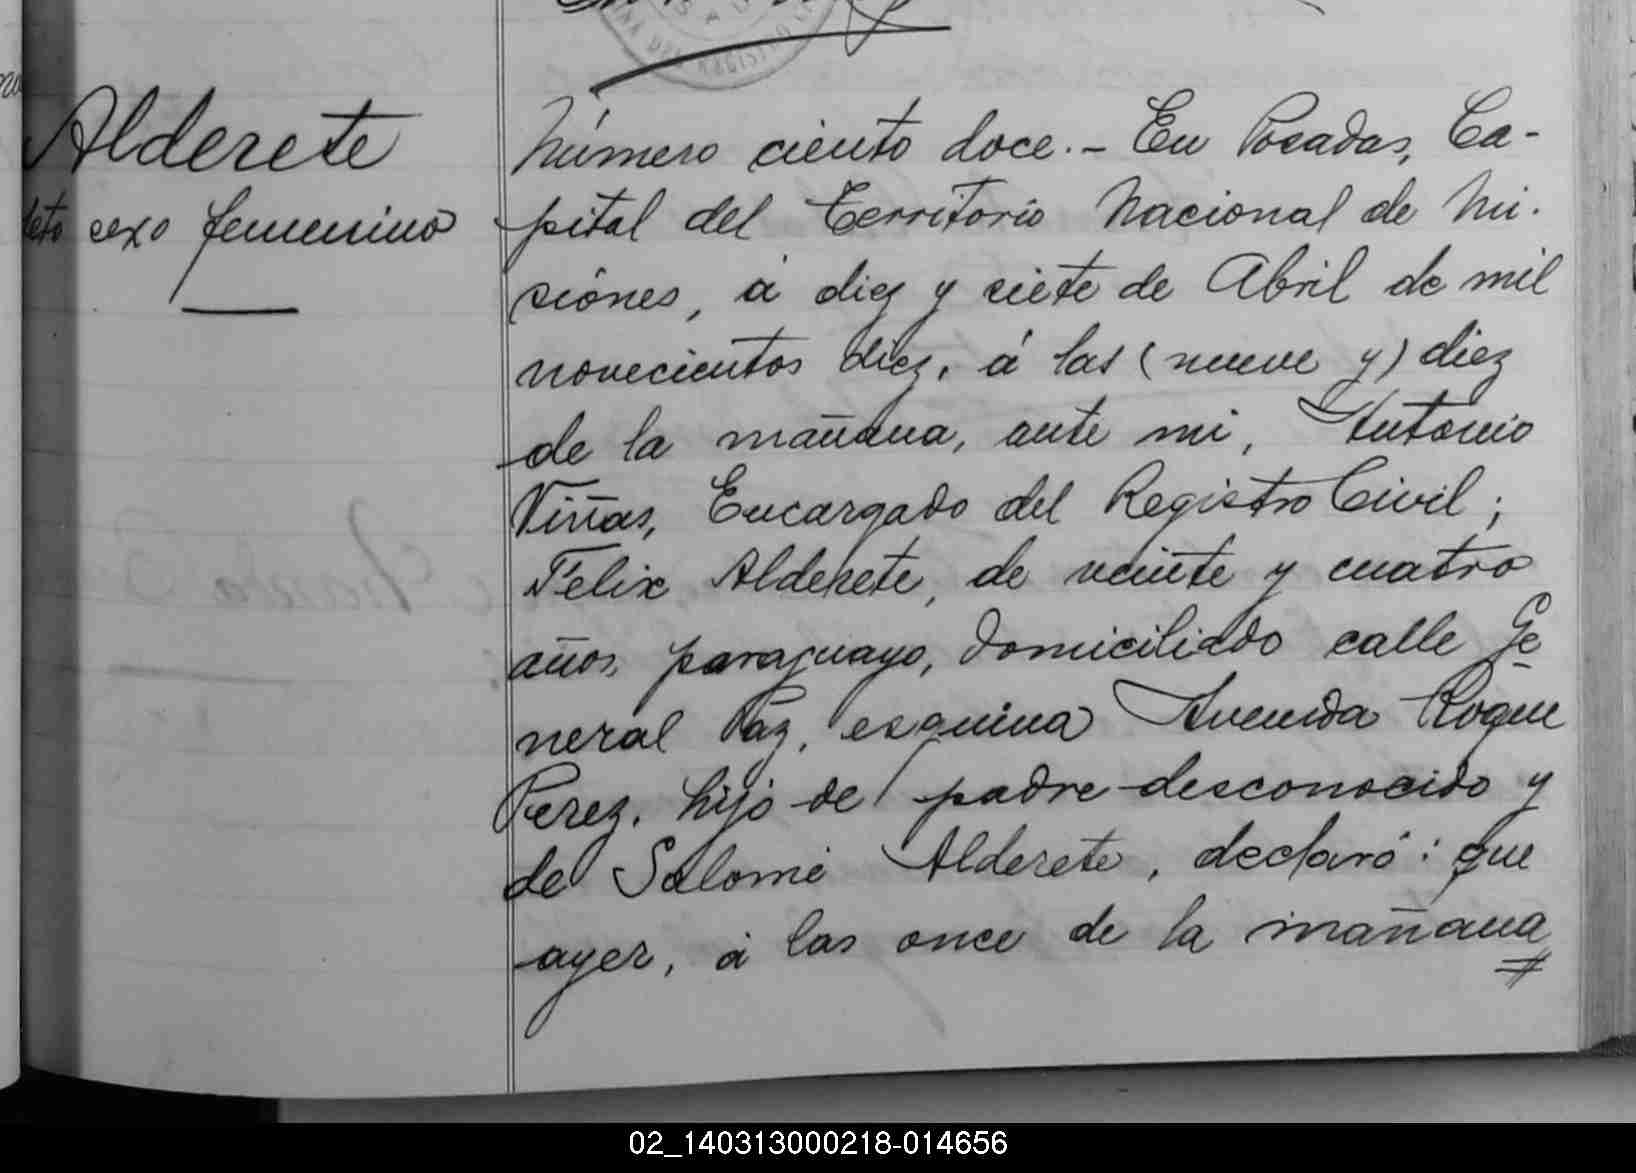 Alderete
feto sexo femenino
Número ciento doce.- En Posadas, Ca-
pital del Territorio Nacional de Mi-
siónes, á diez y siete de Abril de mil
novecientos diez, á las (nueve y) diez
de la mañana, ante mi, Antonio
Viñas, Encargado del Registro Civil;
Felix Alderete, de veinte y cuatro
años, paraguayo, domiciliado calle Ge
neral Paz, esquina Avenida Roque
Perez, hijo de padre desconocido y
de Salomé Alderete, declaró: que
ayer, á las once de la mañana
02_140313000218-014656